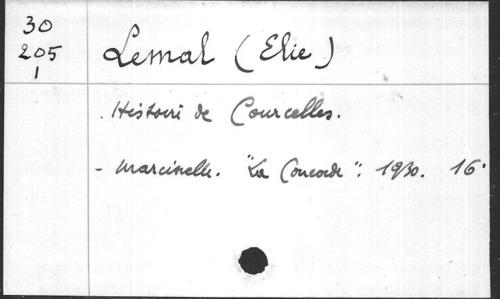 30
205
1
Lemal (Elie)
Histoire de Courcelles.
- Marcinelle. "La Concorde": 1930. 16°